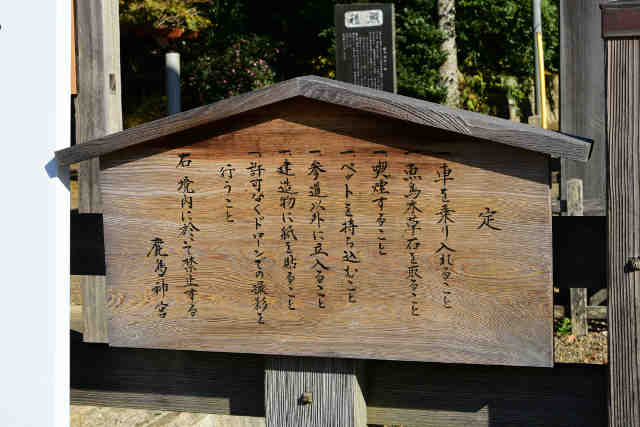 定
一、車を乗り入れること
一、魚鳥木草石を取ること
一、喫煙すること
一、ペットを持ち込むこと
一、参道以外に立入ること
一、建造物に紙を貼ること
一、許可なくドローンでの撮影を
行うこと
右 境内に於て禁止する
鹿島神宮